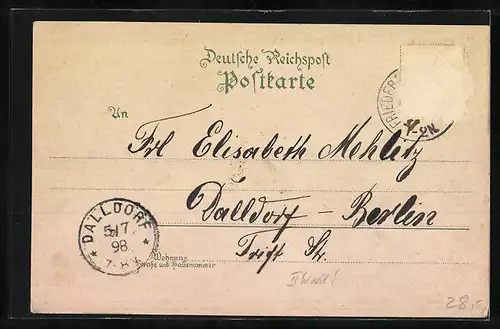 Deutsche Reichspost
Postkarte
FRIEDER
An
Frl Elisabeth Mehlitz
Dalldorf - Berlin
Trift Str.
DALLDORF
5/7
98
7-8
Wohnung
Straße und Hausnummer
28,-